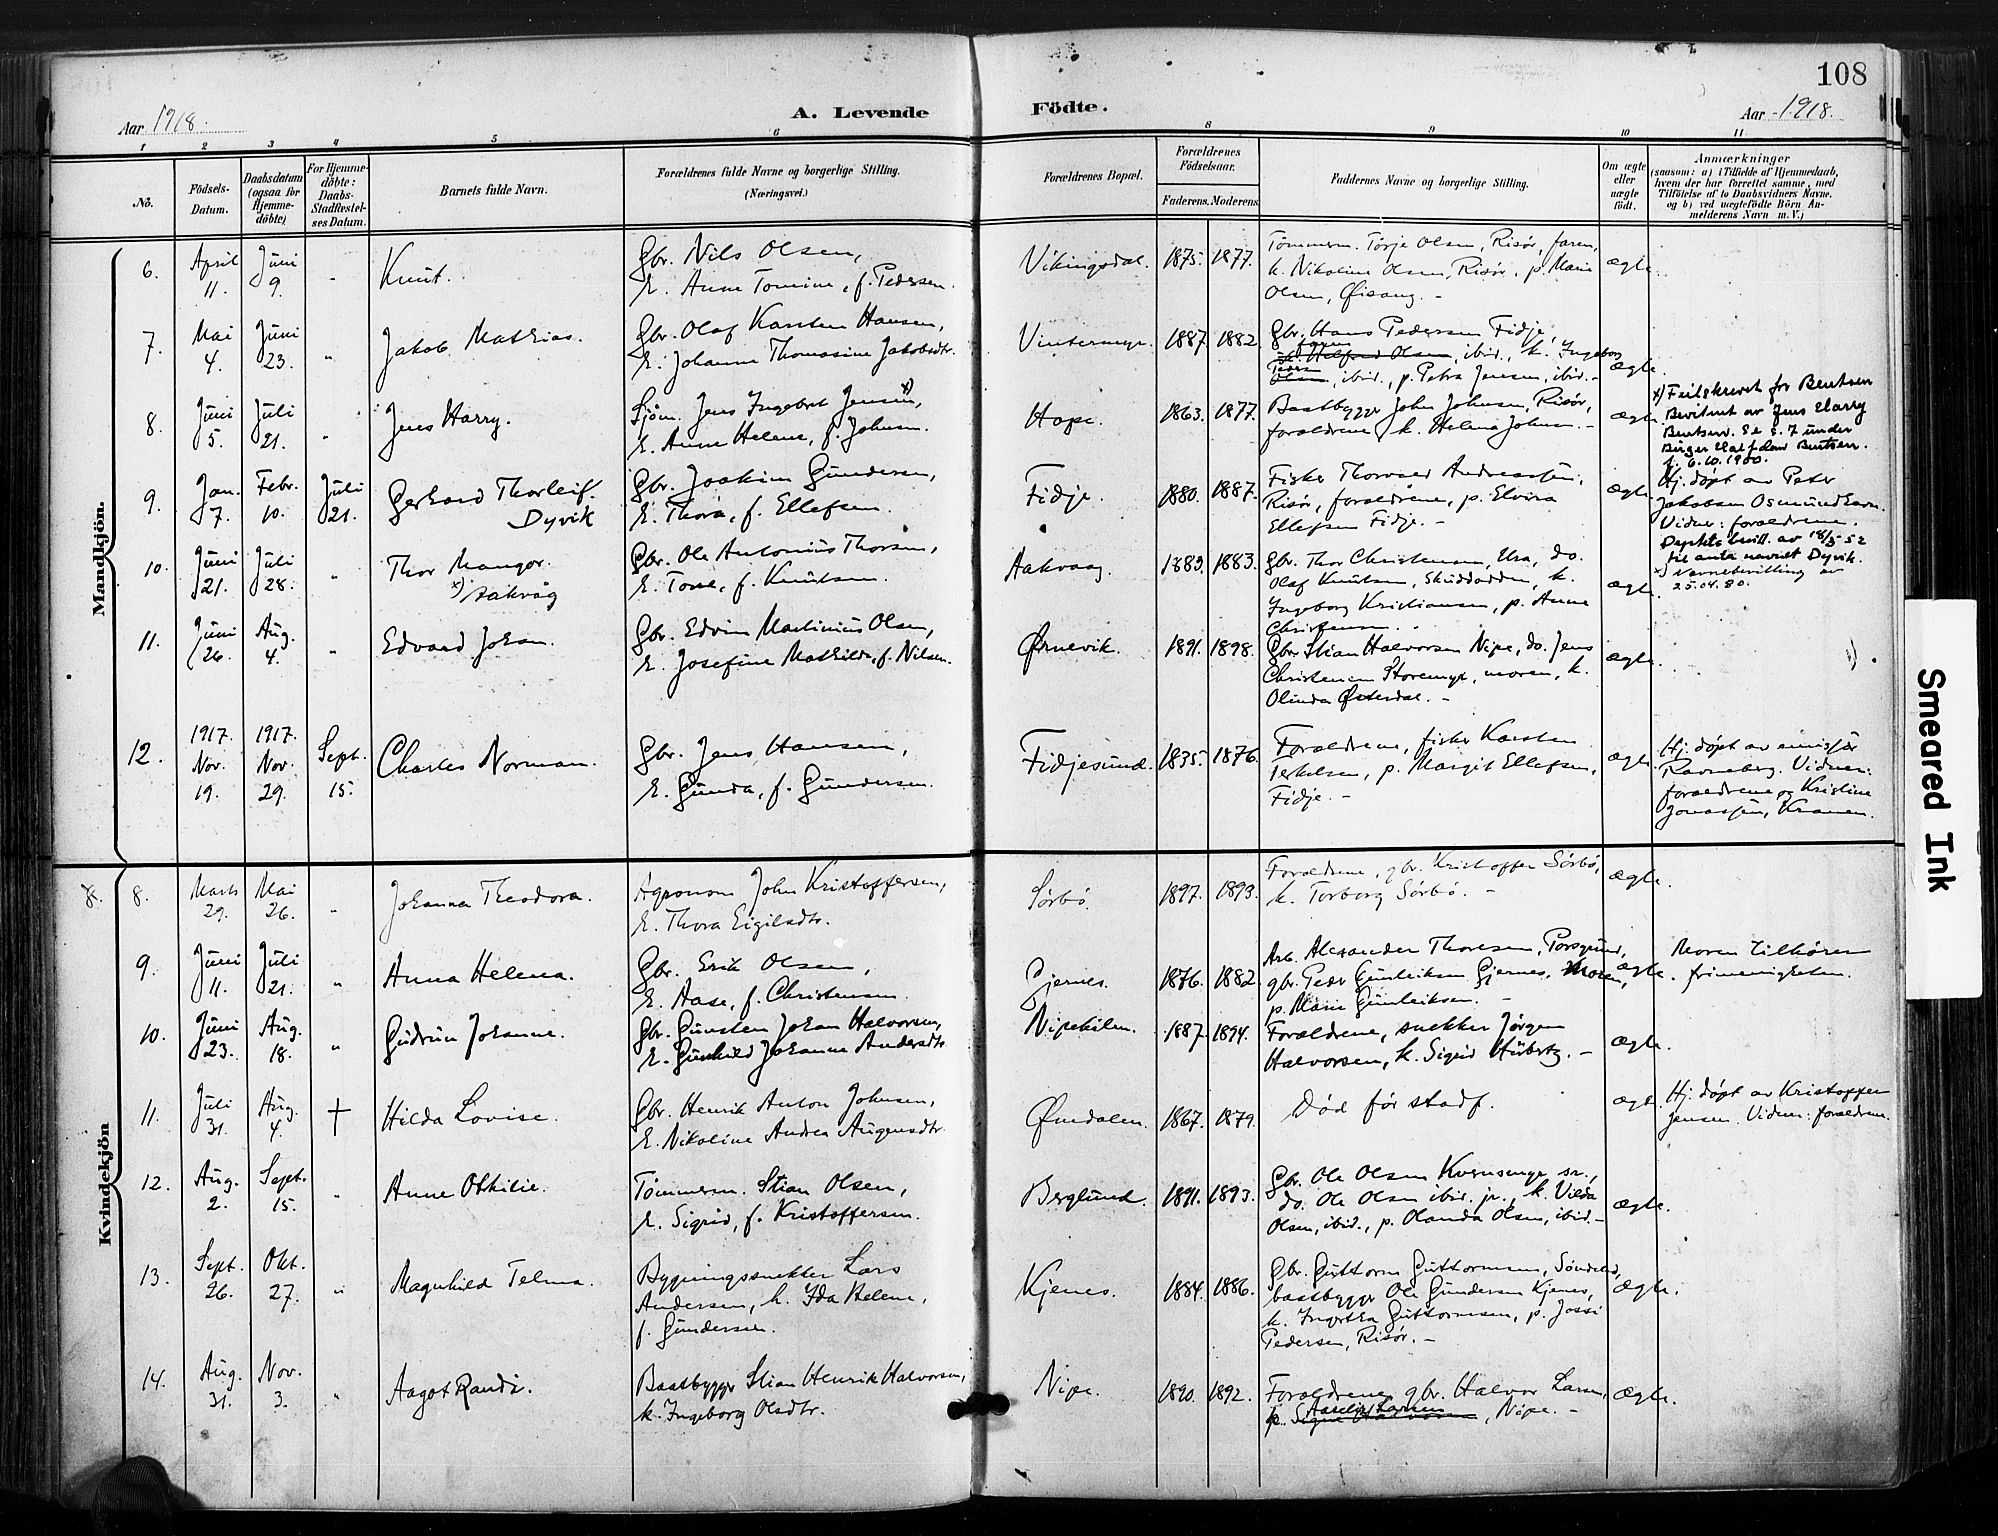 108
Aar 1918.
A. Levende
Födte.
Aar 1918.
1 2 3 4 5 6 8 9 10 11
No.
Födsels-
Datum.
Daabsdatum
(ogsaa for
Hjemme-
döbte)
For Hjemme-
döbte:
Daabs-
Stadfæstel-
ses Datum.
Barnets fulde Navn.
Forældrenes fulde Navne og borgerlige Stilling.
(Næringsvei.)
Forældrenes Bopæl.
Forældrenes
Födselsaar.
Faderens. Moderens.
Faddernes Navne og borgerlige Stilling.
Om ægte
eller
uægte
födt.
Anmærkninger
(saasom: a) i Tilfælde af Hjemmedaab,
hvem der har forrettet samme, med
Tilföielse af to Daabsvidners Navne.
og b) ved uægtefödte Börn An-
melderens Navn m. V.)
Mandkjön.
6. April 11. Juni 9. " Knut.
Gbr. Nils Olsen,
h. Anne Tomine, f. Pedersen.
Vikingsdal. 1875. 1877.
Tömmerm. Terje Olsen, Risør, faren,
k. Nikoline Olsen, Risør, p. Marie
Olsen, Øisang. -
ægte.
7. Mai 4. Juni 23. " Jakob Mathias.
Gbr. Olaf Karsten Hansen,
h. Johanne Thomasine Jakobsdtr.
Vintermyr. 1887. 1882.
Gbr. Hans Pedersen Fidje,
faren
Olsen, ibid., k. Ingeborg
Olsen, ibid., p. Petra Jensen, ibid. -
ægte.
8. Juni 5. Juli 21. " Jens Harry.
Sjöm. Jens Ingebret Jensen x),
h. Anne Helene, f. Johnsen.
Hope. 1863. 1877.
Baatbygger John Johnsen, Risør,
forældrene, k. Helena Johnsen. -
ægte.
x) Feilskrevet for Bentsen
Bevitnet av Jens Harry
Bentsen. Se s. 7 under
Birger Halfdan Bentsen.
f. 6.10.1900.
9. Jan. 7. Febr. 10. Juli 21. Gerhard Thorleif.
Dyvik
Gbr. Joakim Gundersen,
h. Thora, f. Ellefsen.
Fidje. 1880. 1887.
Fisker Thorvald Andreassen,
Risør, forældrene, p. Elvira
Ellefsen Fidje. -
ægte.
Hj. døpt av Peter
Jakobsen Osmundhavn.
Vidner: forældrene.
av 18/5-52
navnet Dyvik.
10. Juni 21. Juli 28. " Thor Mangor.
x) Aakvåg
Gbr. Ole Antonius Thorsen,
h. Tone, f. Knutsen.
Aakvaag. 1883. 1883.
Gbr. Thor Christensen, do.
Olaf Knutsen, Skuddodden, k.
Ingeborg Kristiansen, p. Anne
Christensen. -
ægte.
x) Navnebevilling av
25.04.80.
11. Juni 26. Aug. 4. " Edvard Johan.
Gbr. Edvin Martinius Olsen,
h. Josefine Mathilde, f. Nilsen.
Ørnevik. 1891. 1898.
Gbr Stian Halvorsen Nipe, do. Jens
Christensen Storemyr, moren, k.
Olinda Østerdal. -
ægte.
12. 1917. Nov. 19. 1917. Nov. 29. Sept. 15. Charles Norman.
Gbr. Jens Hansen,
h. Gunda, f. Gundersen.
Fidjesund. 1835. 1876.
Forældrene, fisker Karsten
Terkelsen, p. Margit Ellefsen,
Fidje. -
ægte.
Hj. døpt av emissær
Ravneberg. Vidner:
forældrene og Kristine
Jonassen, Kranen.
Kvindekjön
8. 8. Marts 29. Mai 26. " Johanna Theodora.
Agronom John Kristoffersen,
h. Thora Eigilsdtr.
Sörbö. 1897. 1893.
Forældrene, gbr. Kristoffer Sörbö,
k. Torborg Sörbö. -
ægte.
9. Juni 11. Juli 21. " Anna Helena.
Gbr. Erik Olsen,
h. Aase, f. Christensen.
Gjernes. 1876. 1882.
Arb. Alexander Thoresen, Porsgrund,
gbr. Peder Gunleiksen Gjernes, moren,
p. Marie Gunleiksen. -
ægte.
Moren tilhører
frimenigheten.
10. Juni 23. Aug. 18. " Gudrun Johanne.
Gbr. Gunsten Johan Halvorsen,
h. Gunhild Johanne Andersdtr.
Nipekilen. 1887. 1894.
Forældrene, snekker Jørgen
Halvorsen, k. Sigrid Hübertz. -
ægte.
11. Juli 31. Aug. 4. † Hilda Lovise.
Gbr. Henrik Anton Johnsen,
h. Nikoline Andrea Augensdtr.
Ørndalen. 1867. 1879.
Død før stadf.
ægte.
Hj. døpt av Kristoffer
Jensen. Vidner: forældrene.
12. Aug. 2. Sept. 15. " Anne Othilie.
Tømmerm. Stian Olsen,
h. Sigrid, f. Kristoffersen.
Berglund. 1891. 1893.
Gbr. Ole Olsen Kvernsenge sr.,
do. Ole Olsen ibid. jr., k. Vilda
Olsen, ibid., p. Olanda Olsen, ibid. -
ægte.
13. Sept. 26. Okt. 27. " Magnhild Telma.
Bygningssnekker Lars
Andersen, h. Ida Helene,
f. Gundersen.
Kjenes. 1884. 1886.
Gbr. Guttorm Guttormsen, Söndeled,
baatbygger Ole Gundersen Kjenes,
k. Ingertha Guttormsen, p. Jossi
Pedersen, Risør. -
ægte.
14. Aug. 31. Nov. 3. " Aagot Randi.
Baatbygger Stian Henrik Halvorsen,
h. Ingeborg Olsdtr.
Nipe. 1890. 1892.
Forældrene, gbr. Halvor Larsen,
k. Larsen, Nipe. -
ægte.
Smeared Ink